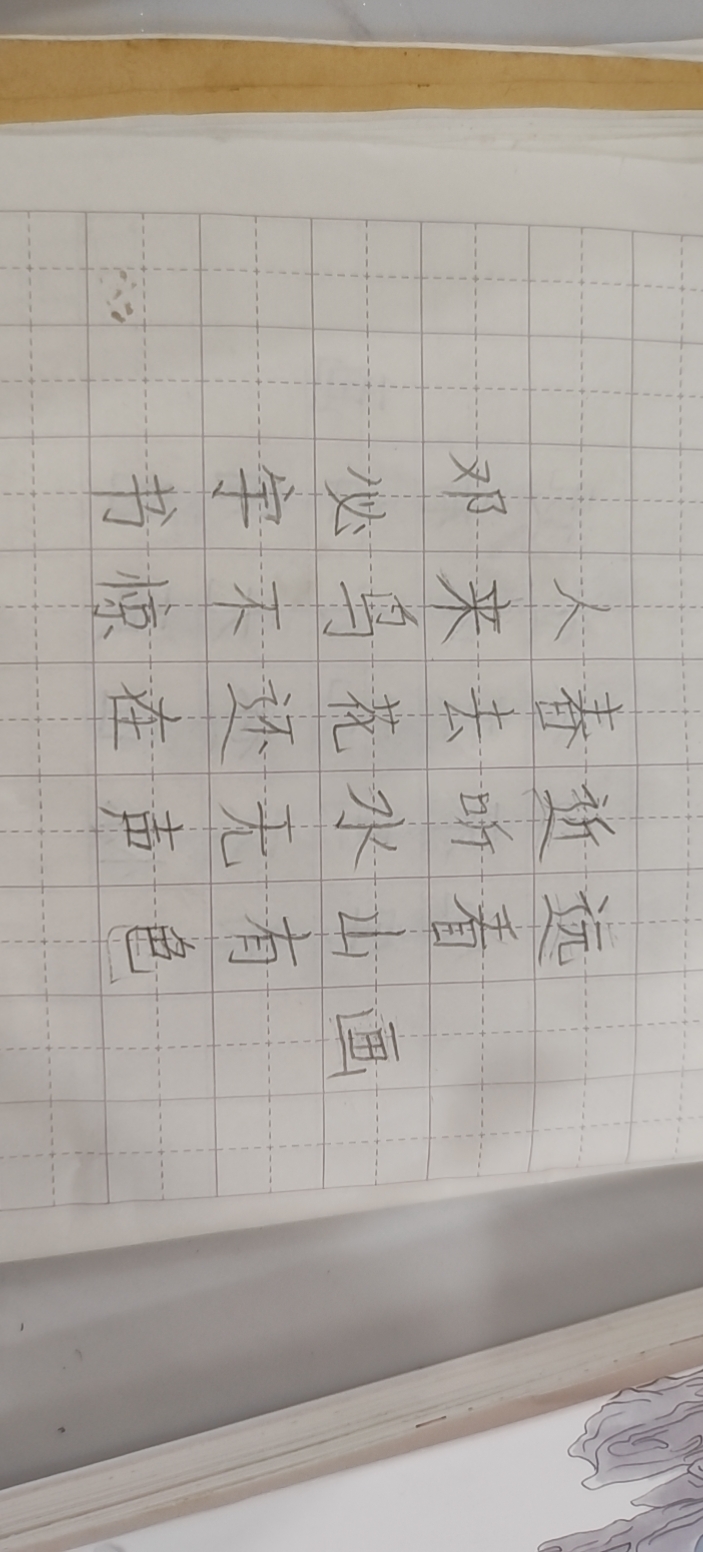 人春近远
邓来去听看
必鸟花水山画
字不还无有
书惊在声色